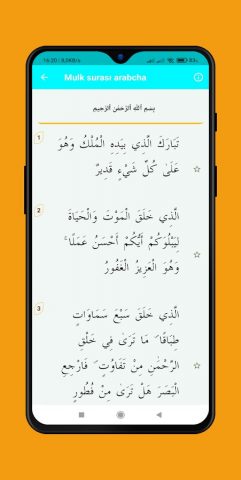 16:20 | 9,0KB/s
Mulk surasi arabcha
بِسْمِ ٱللَّهِ ٱلرَّحْمَٰنِ ٱلرَّحِيمِ
1
تَبَارَكَ الَّذِي بِيَدِهِ الْمُلْكُ وَهُوَ
عَلَىٰ كُلِّ شَيْءٍ قَدِيرٌ
2
الَّذِي خَلَقَ الْمَوْتَ وَالْحَيَاةَ
لِيَبْلُوَكُمْ أَيُّكُمْ أَحْسَنُ عَمَلًا ۚ
وَهُوَ الْعَزِيزُ الْغَفُورُ
3
الَّذِي خَلَقَ سَبْعَ سَمَاوَاتٍ
طِبَاقًا ۖ مَا تَرَىٰ فِي خَلْقِ
الرَّحْمَٰنِ مِنْ تَفَاوُتٍ ۖ فَارْجِعِ
الْبَصَرَ هَلْ تَرَىٰ مِنْ فُطُورٍ